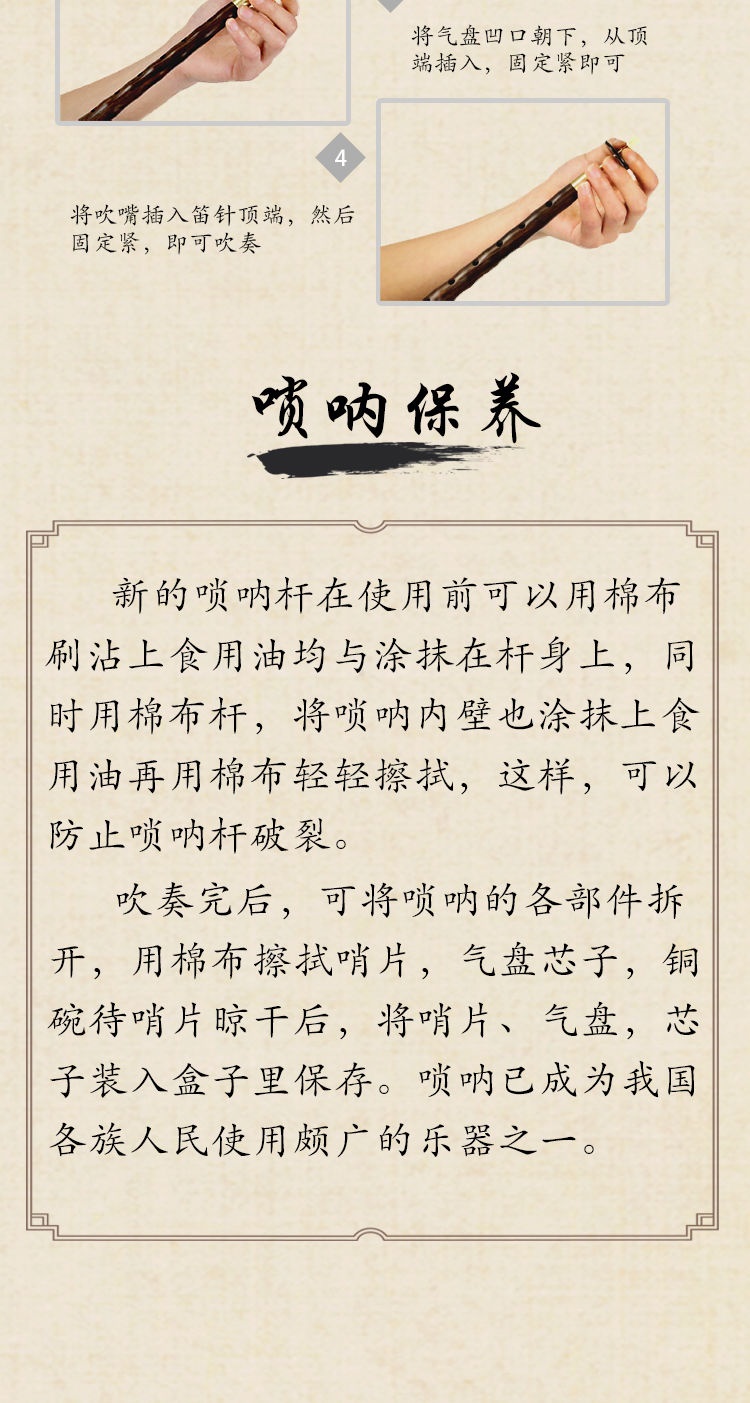 将气盘凹口朝下，从顶
端插入，固定紧即可
4
将吹嘴插入笛针顶端，然后
固定紧，即可吹奏
唢呐保养
新的唢呐杆在使用前可以用棉布
刷沾上食用油均与涂抹在杆身上，同
时用棉布杆，将唢呐内壁也涂抹上食
用油再用棉布轻轻擦拭，这样，可以
防止唢呐杆破裂。
吹奏完后，可将唢呐的各部件拆
开，用棉布擦拭哨片，气盘芯子，铜
碗待哨片晾干后，将哨片、气盘，芯
子装入盒子里保存。唢呐已成为我国
各族人民使用颇广的乐器之一。